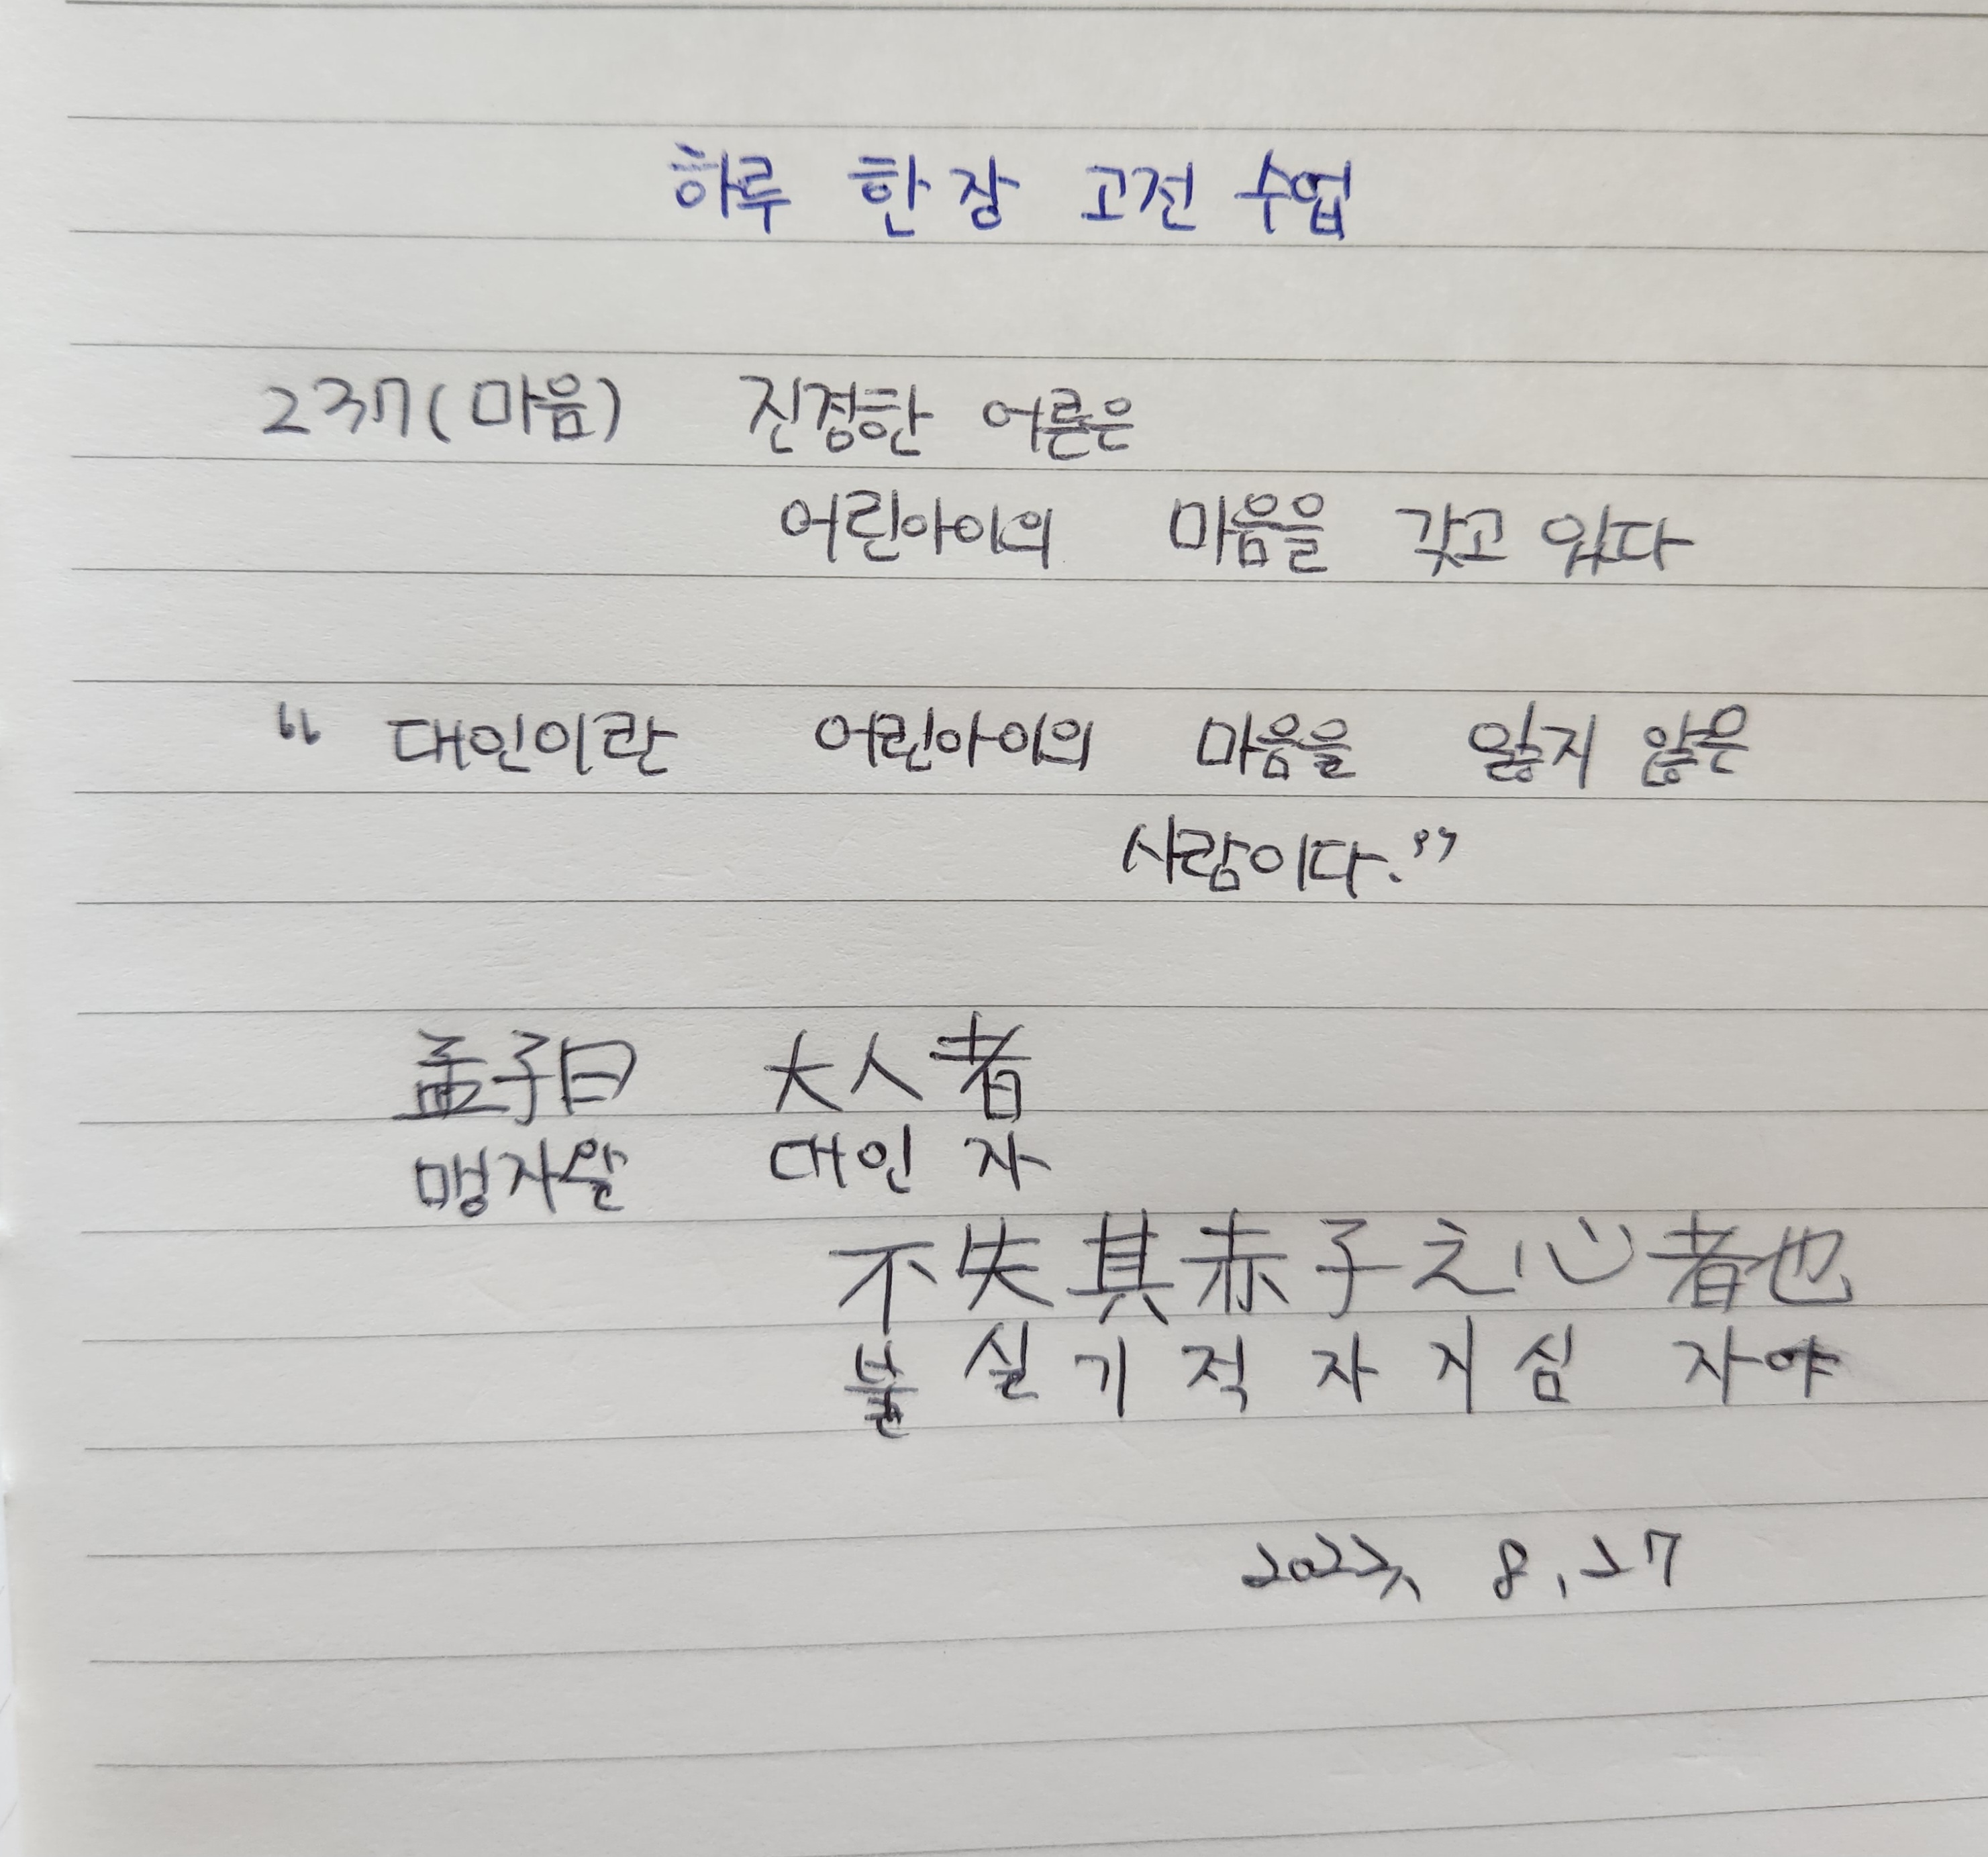 하루 한 장 고전 수업
237(마음) 진정한 어른은
어린아이의 마음을 갖고 있다
“대인이란 어린아이의 마음을 잃지 않은
사람이다.”
孟子曰 大人者
맹자왈 대인 자
不失其赤子之心者也
불 실 기 적 자 지 심 자야
2022, 8, 27